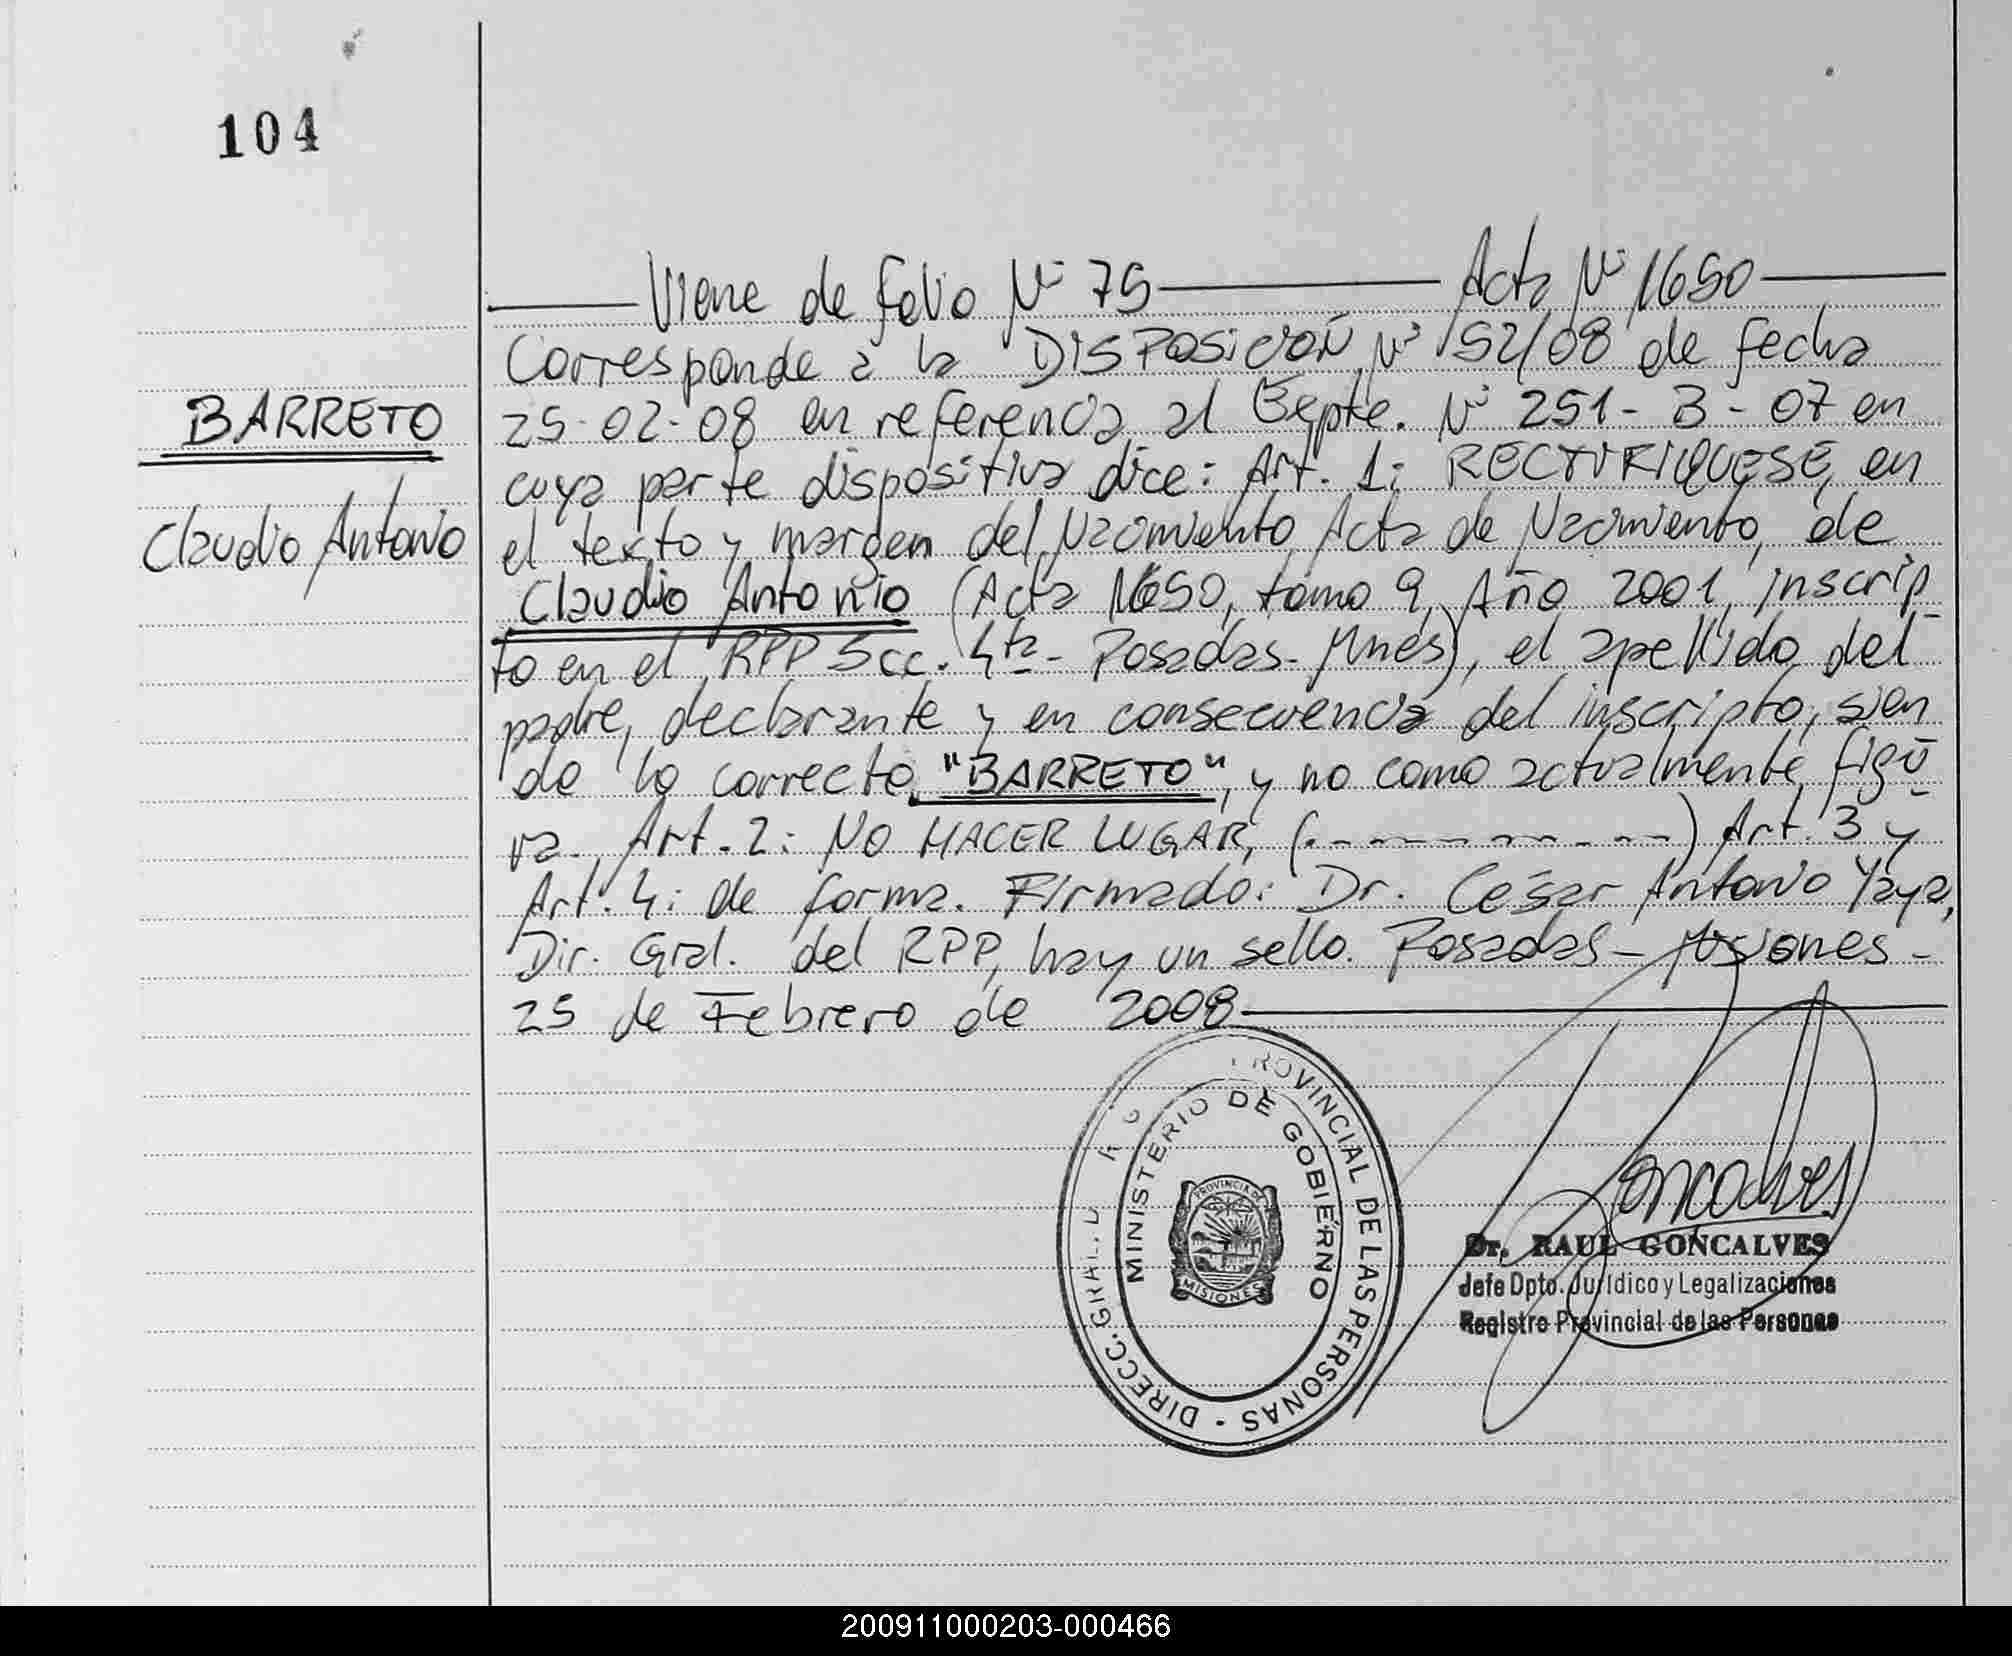 104
Viene de folio Nº 75 Acta Nº 1650
Corresponde a la DISPOSICIÓN Nº 152/08 de fecha
BARRETO
25-02-08 en referencia al Expte. Nº 251-B-07 en
cuya parte dispositiva dice: Art. 1: RECTIFIQUESE, en
Claudio Antonio
el texto y margen del Nacimiento Acta de Nacimiento, de
Claudio Antonio (Acta 1650, tomo 9, Año 2001, inscrip
to en el RPP Scc. 4ta - Posadas - Mnes), el apellido del
padre, declarante y en consecuencia del inscripto, sien
do lo correcto "BARRETO", y no como actualmente figu
ra. Art. 2: NO HACER LUGAR, (.- - - - - - -) Art. 3 y
Art. 4: de forma. Firmado: Dr. César Antonio Yaya,
Dir. Gral. del RPP, hay un sello. Posadas - Misiones -
25 de Febrero de 2008
DIRECC. GRAL. D PROVINCIAL DE LAS PERSONAS
MINISTERIO DE GOBIERNO
PROVINCIA DE
MISIONES
Goncalves
Dr. RAUL GONÇALVES
Jefe Dpto. Jurídico y Legalizaciones
Registro Provincial de las Personas
200911000203-000466